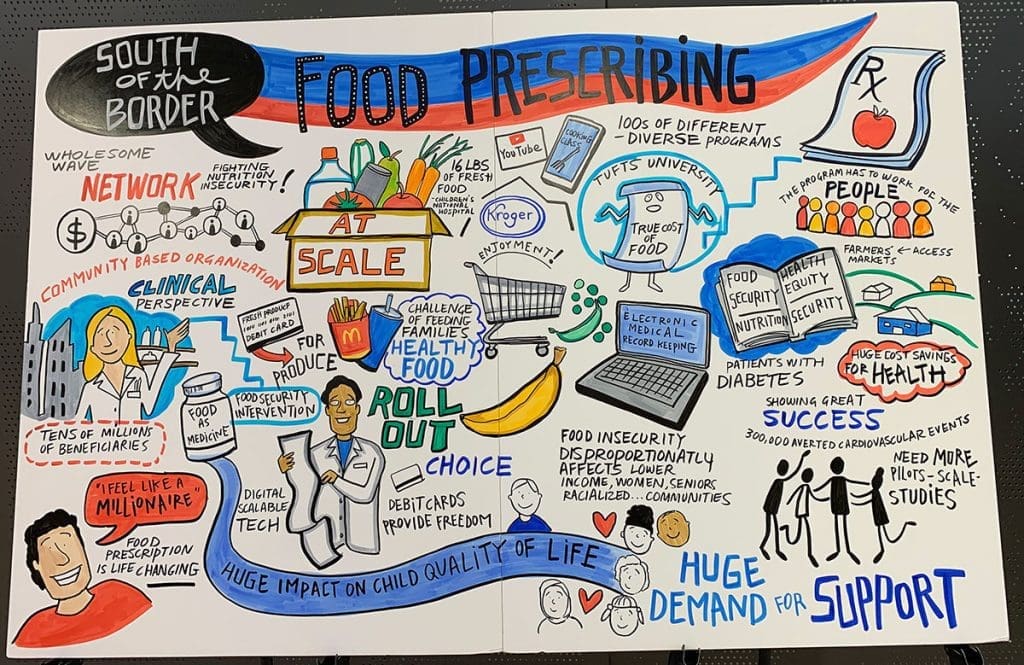 SOUTH
OF the
BORDER
FOOD PRESCRIBING
Rx
WHOLESOME
WAVE
NETWORK
FIGHTING
NUTRITION
INSECURITY!
$
COMMUNITY BASED ORGANIZATION
AT
SCALE
16 LBS
OF FRESH
FOOD
-CHILDREN'S
NATIONAL
HOSPITAL
YouTube
COOKING
CLASS
Kroger
100s OF DIFFERENT
-DIVERSE PROGRAMS
TUFTS UNIVERSITY
TRUE COST
OF
FOOD
THE PROGRAM HAS TO WORK FOR THE
PEOPLE
FARMERS' ← ACCESS
MARKETS
CLINICAL
PERSPECTIVE
FRESH PRODUCE
DEBIT CARD
FOR
PRODUCE
M
CHALLENGE
OF FEEDING
FAMILIES
HEALTHY
FOOD
ENJOYMENT!
ELECTRONIC
MEDICAL
RECORD KEEPING
FOOD
SECURITY
NUTRITION
HEALTH
EQUITY
SECURITY
PATIENTS WITH
DIABETES
HUGE COST SAVINGS
FOR HEALTH
TENS OF MILLIONS
OF BENEFICIARIES
FOOD
AS
MEDICINE
FOOD SECURITY
INTERVENTION
ROLL
OUT
CHOICE
DIGITAL
SCALABLE
TECH
DEBIT CARDS
PROVIDE FREEDOM
FOOD INSECURITY
DISPROPORTIONATLY
AFFECTS LOWER
INCOME, WOMEN, SENIORS
RACIALIZED... COMMUNITIES
SHOWING GREAT
SUCCESS
300,000 AVERTED CARDIOVASCULAR EVENTS
NEED MORE
PILOTS-SCALE-
STUDIES
"I FEEL LIKE A
MILLIONAIRE"
FOOD
PRESCRIPTION
IS LIFE CHANGING
HUGE IMPACT ON CHILD QUALITY OF LIFE
HUGE
DEMAND FOR SUPPORT